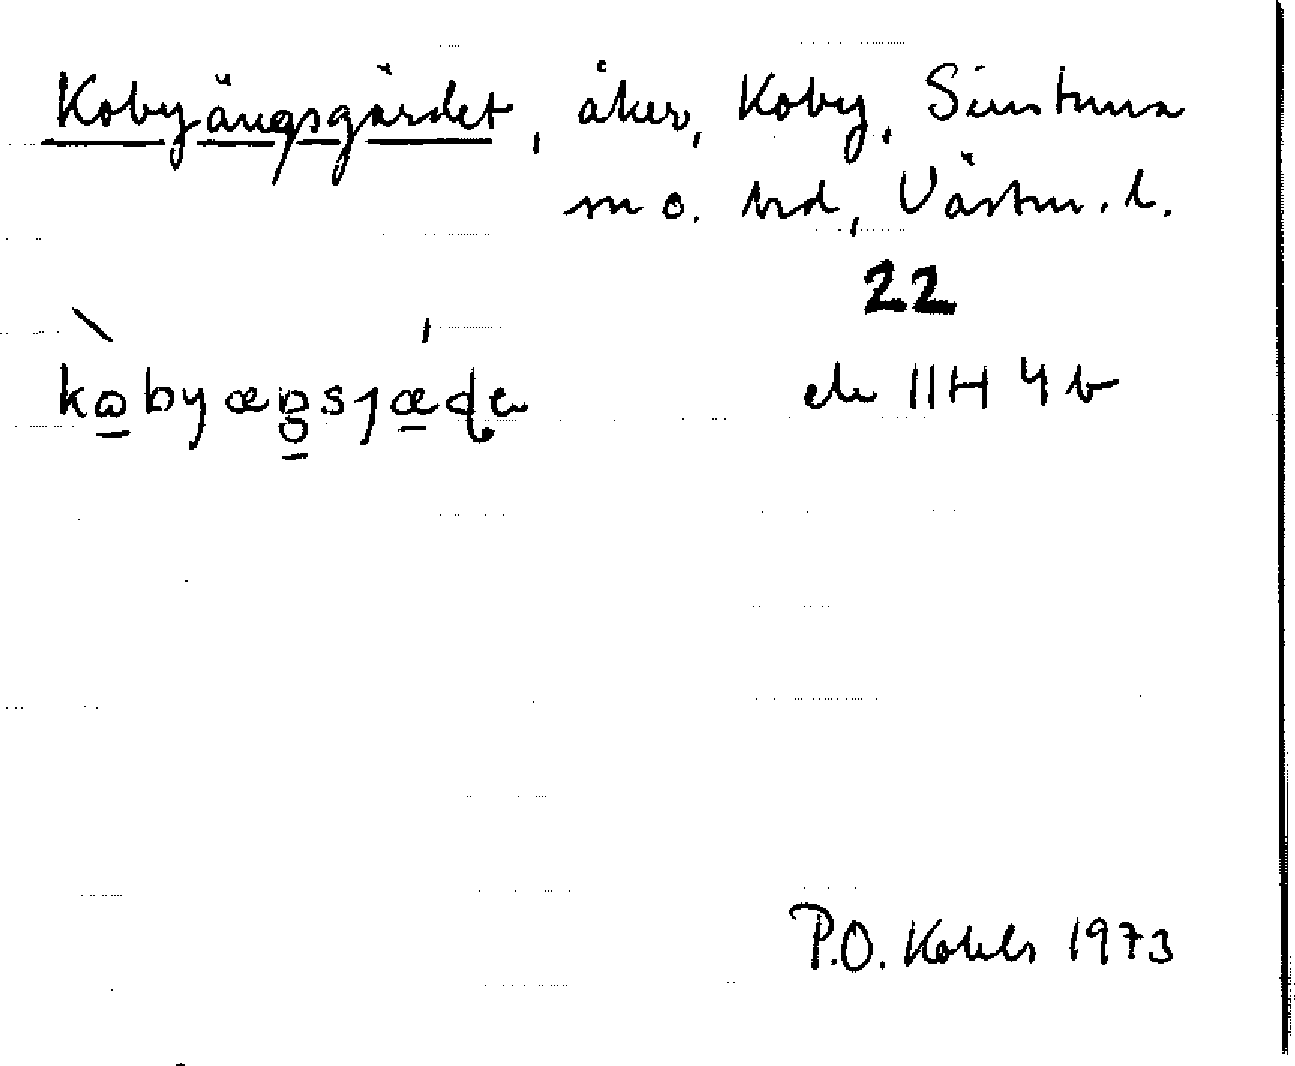 Kobyängsgärdet, åker, Koby, Simtuna
sn o. hd, Västm. l.
22
ek 11H 4b
P.O. Kohls 1973